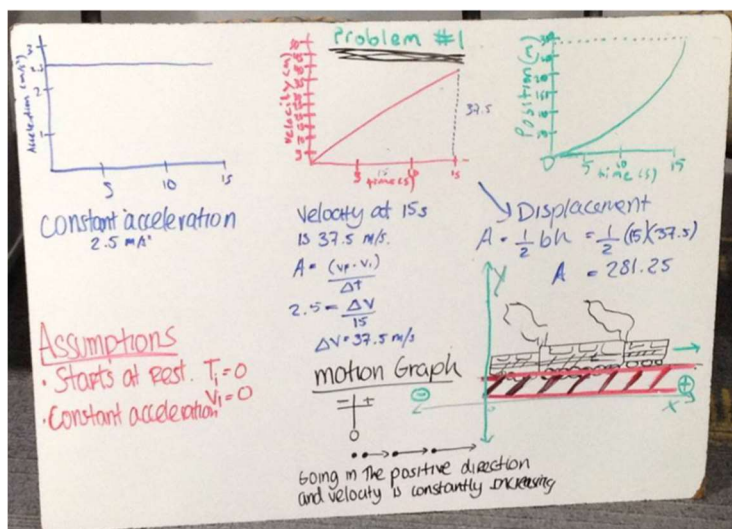 Problem #1
Acceleration (m/s²)
3
2
1
5 10 15
Constant acceleration
2.5 m/s²
Velocity (m)
37.5
5 10 15
time (s)
Velocity at 15s
is 37.5 m/s.
A = (vf - vi)
Δt
2.5 = ΔV
15
ΔV = 37.5 m/s
Position (m)
0 5 10 15
time (s)
Displacement
A = 1/2 bh = 1/2 (15)(37.5)
A = 281.25
Assumptions
• Starts at rest. Ti = 0
Vi = 0
• Constant acceleration
motion Graph
- +
0
Going in The positive direction
and velocity is constantly increasing
y
- +
x